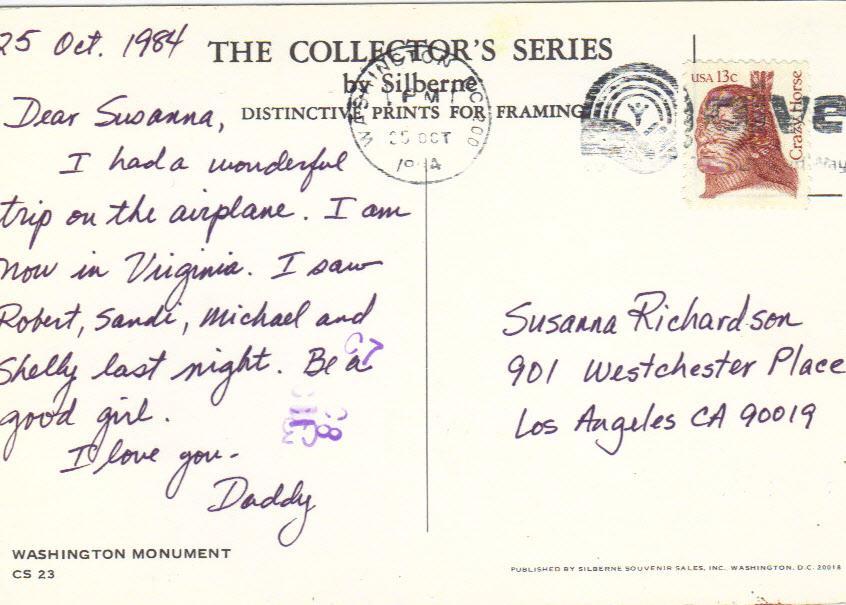 25 Oct. 1984
THE COLLECTOR'S SERIES
by Silberne
DISTINCTIVE PRINTS FOR FRAMING
WASHINGTON DC 200
PM
25 OCT
1984
USA 13c
Crazy Horse
Dear Susanna,
I had a wonderful
trip on the airplane. I am
now in Virginia. I saw
Robert, Sandi, Michael and
Shelly last night. Be a
good girl.
I love you-
Daddy
Susanna Richardson
901 Westchester Place
Los Angeles CA 90019
WASHINGTON MONUMENT
CS 23
PUBLISHED BY SILBERNE SOUVENIR SALES, INC. WASHINGTON, D.C. 20018